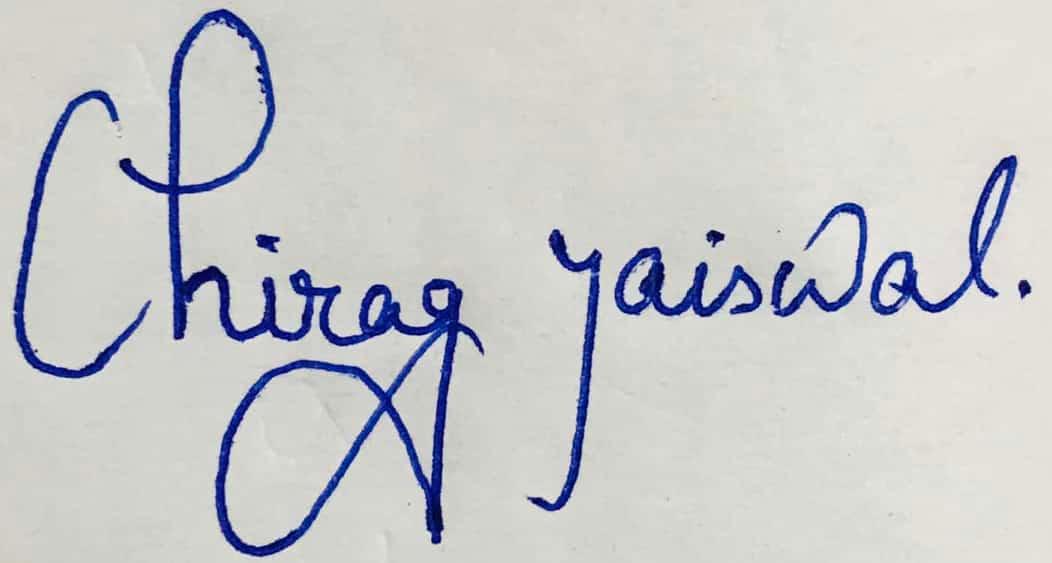 Chirag Jaiswal.